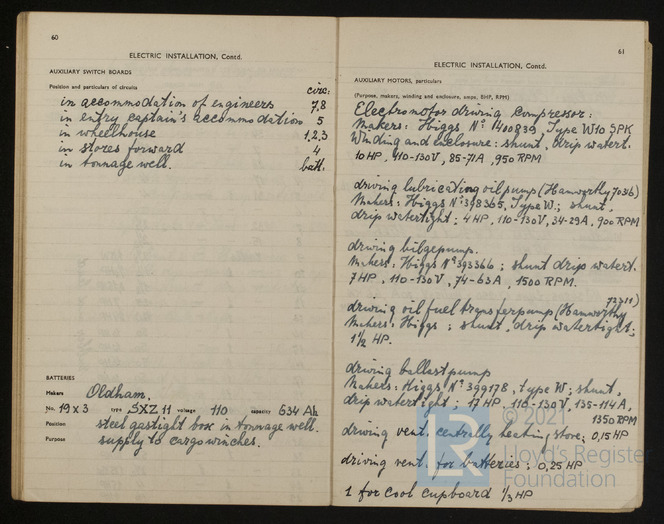 60
ELECTRIC INSTALLATION, Contd.
AUXILIARY SWITCH BOARDS
Position and particulars of circuits circ:
in accommodation of engineers 7,8
in entry captain's accommodation 5
in wheelhouse 1,2,3
in stores forward 4
in tonnage well. batt.
BATTERIES
Makers Oldham.
No. 19 x 3 type SXZ 11 voltage 110 capacity 634 Ah
Position steel gastight box in tonnage well.
Purpose supply to cargo winches.
61
ELECTRIC INSTALLATION, Contd.
AUXILIARY MOTORS, particulars
(Purpose, makers, winding and enclosure, amps, BHP, RPM)
Electromotor driving compressor:
Makers: Higgs No 400839, Type W10 SPK
Winding and enclosure: shunt, drip watert.
10 HP, 110-130V, 85-71A, 950 RPM
driving lubricating oil pump (Hamworthy 70316)
Makers: Higgs No 398365, Type W.; shunt,
drip watertight; 4 HP, 110-130V, 34-29A, 900 RPM
driving bilgepump.
Makers: Higgs No 393366; shunt drip watert.
7 HP, 110-130V, 74-63A, 1500 RPM.
72311)
driving oil fuel transferpump (Hamworthy
Makers: Higgs; shunt, drip watertight;
1½ HP.
driving ballastpump
Makers: Higgs No 399178, type W; shunt,
drip watertight; 17 HP, 110-130V, 135-114A,
1350 RPM
driving vent. centrally heating store; 0,15 HP
driving vent. for batteries; 0,25 HP
1 for cool cupboard ⅓ HP
© 2021
Lloyd's Register
Foundation